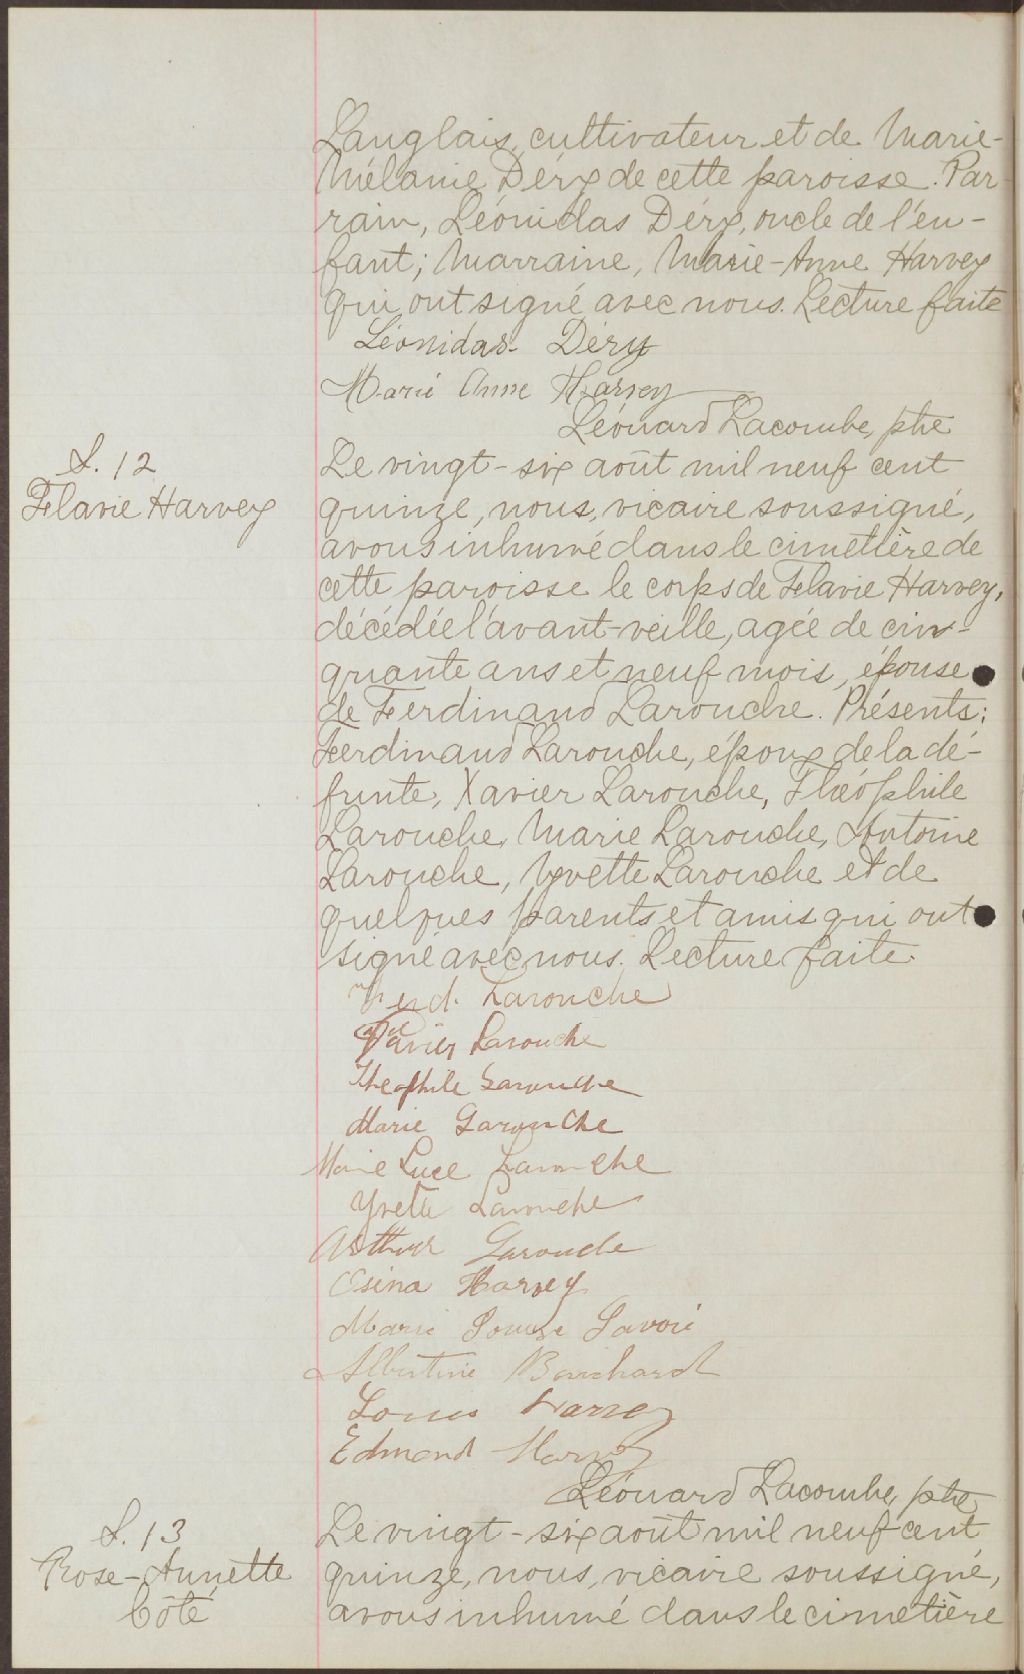 Langlais, cultivateur et de Marie-
Mélanie Déry de cette paroisse. Par-
rain, Léonidas Déry, oncle de l'en-
fant; Marraine, Marie-Anne Harvey
qui ont signé avec nous. Lecture faite
Léonidas Déry
Marie Anne Harvey
Léonard Lacombe, ptre
S. 12
Flavie Harvey
Le vingt-six août mil neuf cent
quinze, nous, vicaire soussigné,
avons inhumé dans le cimetière de
cette paroisse le corps de Flavie Harvey,
décédée l'avant-veille, agée de cin-
quante ans et neuf mois, épouse
de Ferdinand Larouche. Présents:
Ferdinand Larouche, époux de la dé-
funte, Xavier Larouche, Théophile
Larouche, Marie Larouche, Antoine
Larouche, Yvette Larouche et de
quelques parents et amis qui ont
signé avec nous. Lecture faite.
Ferd. Larouche
Xavier Larouche
Theophile Larouche
Marie Larouche
Marie Luce Larouche
Yvette Larouche
Arthur Larouche
Osina Harvey
Marie Louise Savoie
Albertine Bouchard
Louis Harvey
Edmond Harvey
Léonard Lacombe, ptre
S. 13
Rose-Annette
Côté
Le vingt-six août mil neuf cent
quinze, nous, vicaire soussigné,
avons inhumé dans le cimetière